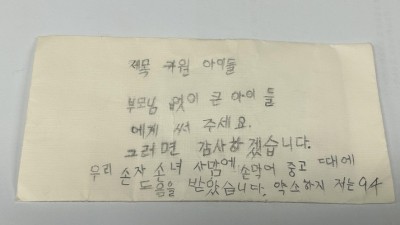 제목 커월 아이들
부모님 없이 큰 아이들
에게 써 주세요.
그러면 감사하겠습니다.
우리 손자 손녀 사맘에 중고 때에
도움을 받았습니다. 약소하지 저는 94